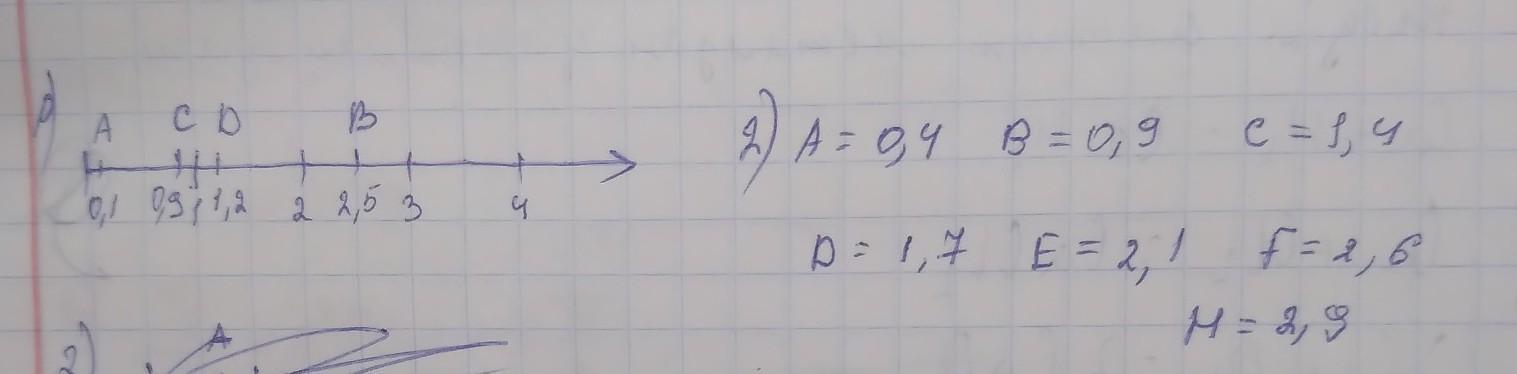 1)
A C D B
0,1 0,9 1 1,2 2 2,5 3 4
2) A = 0,4 B = 0,9 C = 1,4
D = 1,7 E = 2,1 F = 2,6
H = 2,9
2) A